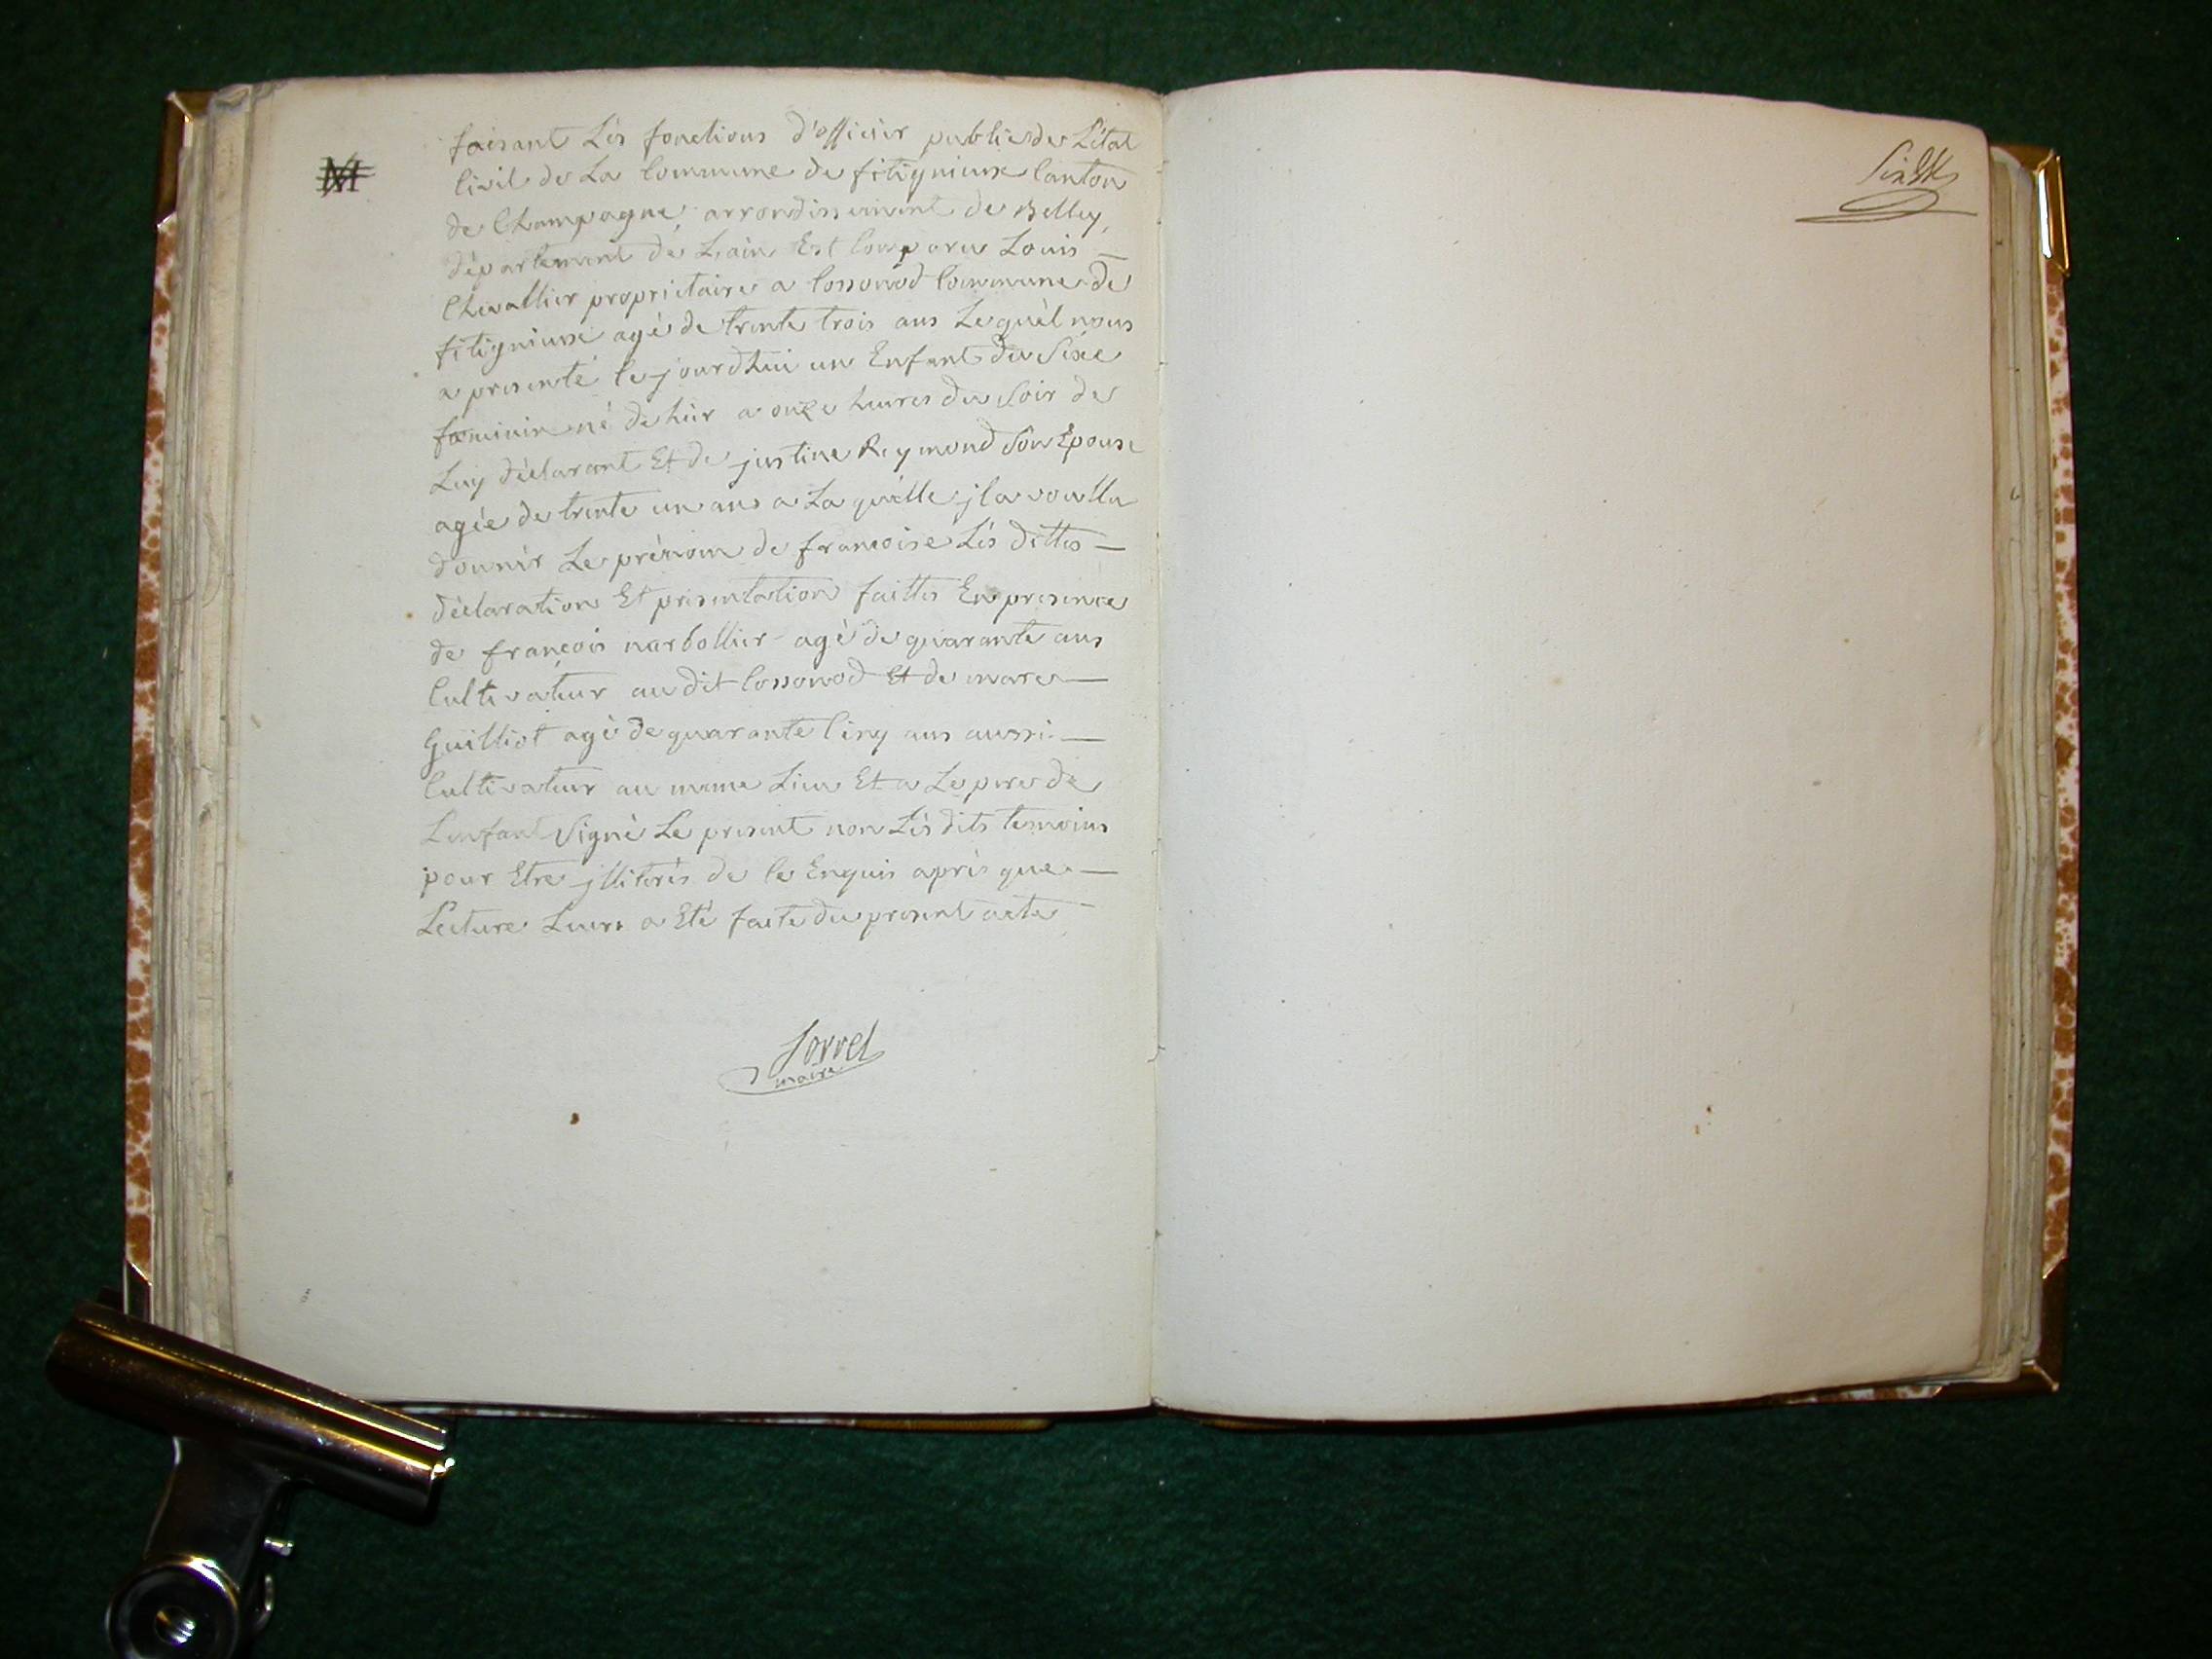 faisant Lés fonctions d'officièr public de L'état
Civil de La Commune de fitignieux Canton
de Champagne, arrondissement de Belley,
département de Lain Est Comparu Louis —
Chevallier propriétaire a Cossonod Commune de
fitignieux agé de trente trois ans Lequèl nous
a presenté Cejourdhui un Enfant du Séxe
fœminin né de hièr a onze heures du Soir de
Luy déclarant Et de justine Reymond Son Epouse
agée de trente un ans a La quélle jl a voullu
donnér Le prénom de francoise Lés dittes —
déclaration Et presentation faittes En presence
de françois narbollier agé de quarante ans
Cultivateur au dit Cossonod Et de marc —
Guilliot agé de quarante Cinq ans aussi —
Cultivateur au meme Lieu Et a Le pere de
Lenfant Signé Le present non Lés dits temoins
pour Etre jllitérés de Ce Enquis aprés que —
Lecture Leurs a Eté faite du present acte
Sorrel
maire